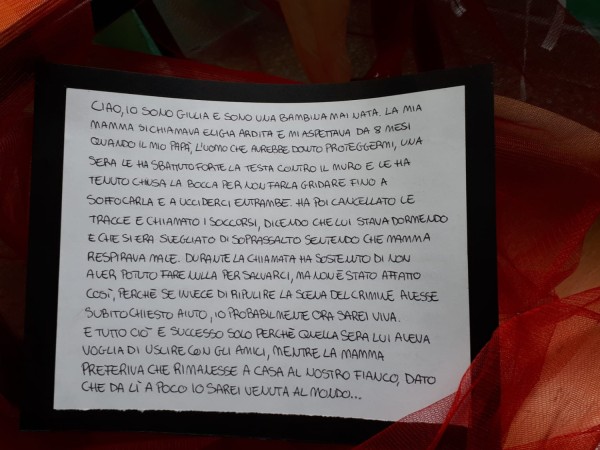 CIAO, IO SONO GIULIA E SONO UNA BAMBINA MAI NATA. LA MIA
MAMMA SI CHIAMAVA ELIGIA ARDITA E MI ASPETTAVA DA 8 MESI
QUANDO IL MIO PAPÀ, L'UOMO CHE AVREBBE DOVUTO PROTEGGERMI, UNA
SERA LE HA SBATTUTO FORTE LA TESTA CONTRO IL MURO E LE HA
TENUTO CHIUSA LA BOCCA PER NON FARLA GRIDARE FINO A
SOFFOCARLA E A UCCIDERCI ENTRAMBE. HA POI CANCELLATO LE
TRACCE E CHIAMATO I SOCCORSI, DICENDO CHE LUI STAVA DORMENDO
E CHE SI ERA SVEGLIATO DI SOPRASSALTO SENTENDO CHE MAMMA
RESPIRAVA MALE. DURANTE LA CHIAMATA HA SOSTENUTO DI NON
AVER POTUTO FARE NULLA PER SALVARCI, MA NON È STATO AFFATTO
COSÌ, PERCHÈ SE INVECE DI RIPULIRE LA SCENA DEL CRIMINE AVESSE
SUBITO CHIESTO AIUTO, IO PROBABILMENTE ORA SAREI VIVA.
E TUTTO CIÒ È SUCCESSO SOLO PERCHÈ QUELLA SERA LUI AVEVA
VOGLIA DI USCIRE CON GLI AMICI, MENTRE LA MAMMA
PREFERIVA CHE RIMANESSE A CASA AL NOSTRO FIANCO, DATO
CHE DA LÌ A POCO IO SAREI VENUTA AL MONDO...